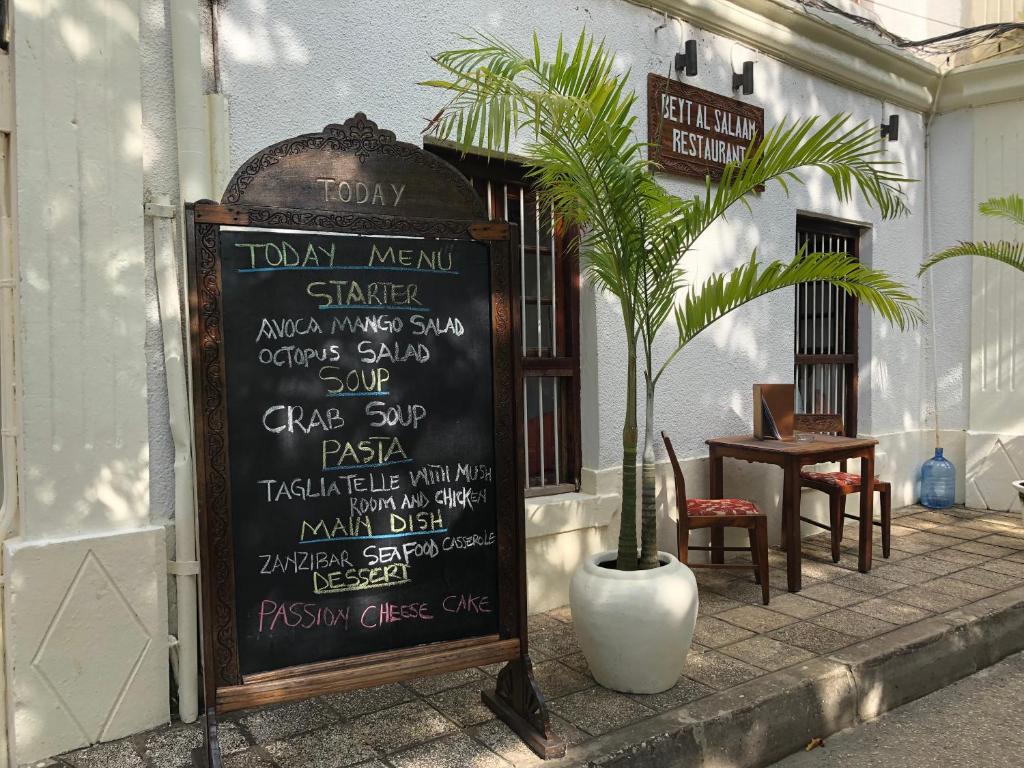 TODAY
TODAY MENU
STARTER
AVOCA MANGO SALAD
OCTOPUS SALAD
SOUP
CRAB SOUP
PASTA
TAGLIATELLE WITH MUSH
ROOM AND CHICKEN
MAIN DISH
ZANZIBAR SEAFOOD CASSEROLE
DESSERT
PASSION CHEESE CAKE
BEYT AL SALAAM
RESTAURANT